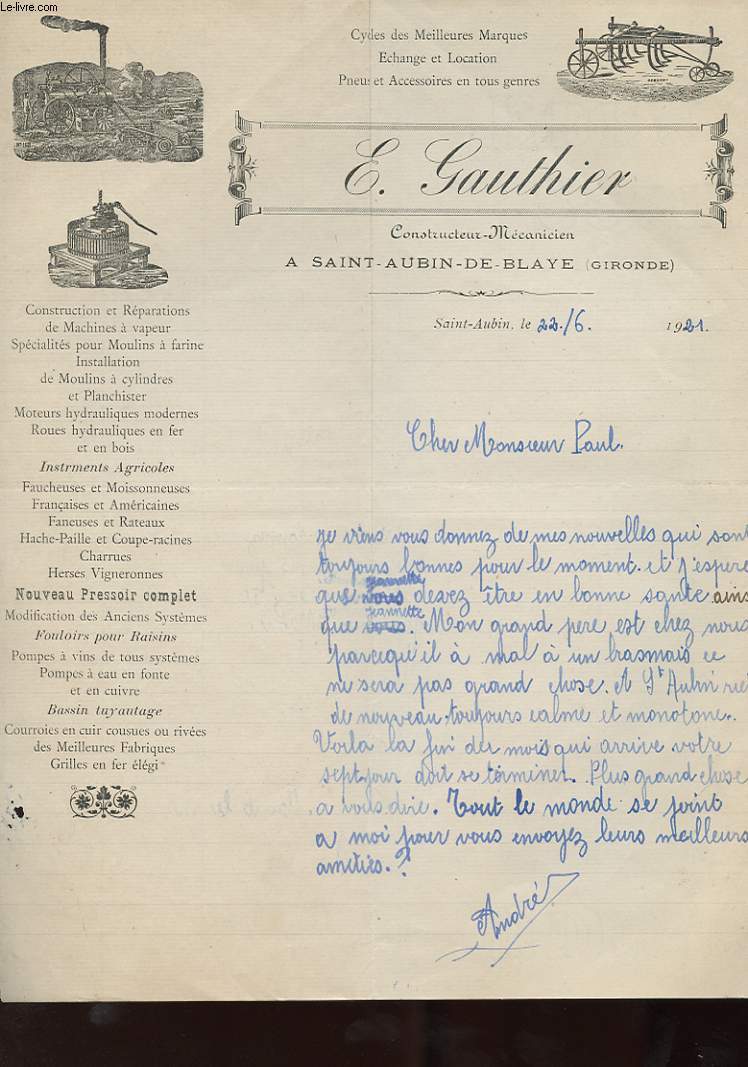 Le-livre.com
Cycles des Meilleures Marques
Echange et Location
Pneus et Accessoires en tous genres
E. Gauthier
Constructeur-Mécanicien
A SAINT-AUBIN-DE-BLAYE (GIRONDE)
Saint-Aubin, le 22/6. 1921.
Construction et Réparations
de Machines à vapeur
Spécialités pour Moulins à farine
Installation
de Moulins à cylindres
et Planchister
Moteurs hydrauliques modernes
Roues hydrauliques en fer
et en bois
Instrments Agricoles
Faucheuses et Moissonneuses
Françaises et Américaines
Faneuses et Rateaux
Hache-Paille et Coupe-racines
Charrues
Herses Vigneronnes
Nouveau Pressoir complet
Modification des Anciens Systèmes
Fouloirs pour Raisins
Pompes à vins de tous systèmes
Pompes à eau en fonte
et en cuivre
Bassin tuyautage
Courroies en cuir cousues ou rivées
des Meilleures Fabriques
Grilles en fer élégi
Cher Monsieur Paul.
je viens vous donnez de mes nouvelles qui sont
toujours bonnes pour le moment. et j'espere
jeannette
que vous devez être en bonne santé ains
jeannette
que vous. Mon grand pere est chez nous
parcequ'il à mal à un bras mais ce
ne sera pas grand chose. A St Aubin rie
de nouveau toujours calme et monotone.
Voila la fin du mois qui arrive votre
sept jour doit se terminer. Plus grand chose
a vous dire. Tout le monde se joint
a moi pour vous envoyez leurs meilleurs
amitiés.
André